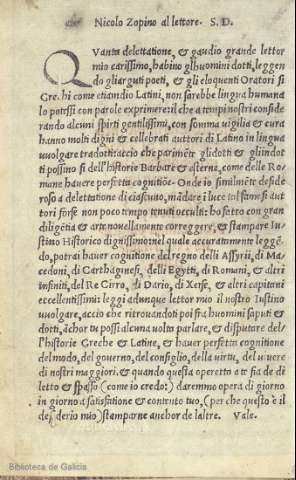 Nicolo Zopino al lettore. S. D.
QVanta delettatione, & gaudio grande lettor
mio carissimo, habino glhuomini dotti, leggen
do gliarguti poeti, & gli eloquenti Oratori si
Gre. hi come etiandio Latini, non sarebbe lingua humana
lo potessi con parole exprimere: il che a tempi nostri conside
rando alcuni spirti gentilissimi, con somma vigilia & cura
hanno molti digni & cellebrati auttori di Latino in lingua
vuolgare tradotti: accio che parimēte glidotti & gliindot
ti possino si dell'historie Barbare & esterne, come delle Ro-
mane hauere perfetta cognitiōe. Onde io similmēte deside
roso a delettatione di ciascuno, mādare i luce tal fiate si au
tori forse non poco tempo tenuti occulti: ho fatto con gran
diligētia & arte nouellamente correggere, & stampare Iu-
stino Historico dignissimo: nel quale accuratamente leggē-
do, potrai hauer cognitione del regno delli Assyrii, di Ma-
cedoni, di Carthaginesi, delli Egytti, di Romani, & altri
infiniti, del Re Cirro, di Dario, di Xerse, & altri capitani
eccellentissimi: leggi adunque lettor mio il nostro Iustino
vuolgare, accio che ritrouandoti poi fra huomini saputi &
dotti, āchor tu possi alcuna volta parlare, & disputare del-
l'historie Greche & Latine, & hauer perfetta cognitione
del modo, del gouerno, del consiglio, della virtu, del viuere
di nostri maggiori. & quando questa operetta a te sia de di
letto & spasso (come io credo) daremmo opera di giorno
in giorno a satisfatione & contento tuo, (per che questo è il
desiderio mio) stamparne anchor de laltre. Vale.
Biblioteca de Galicia